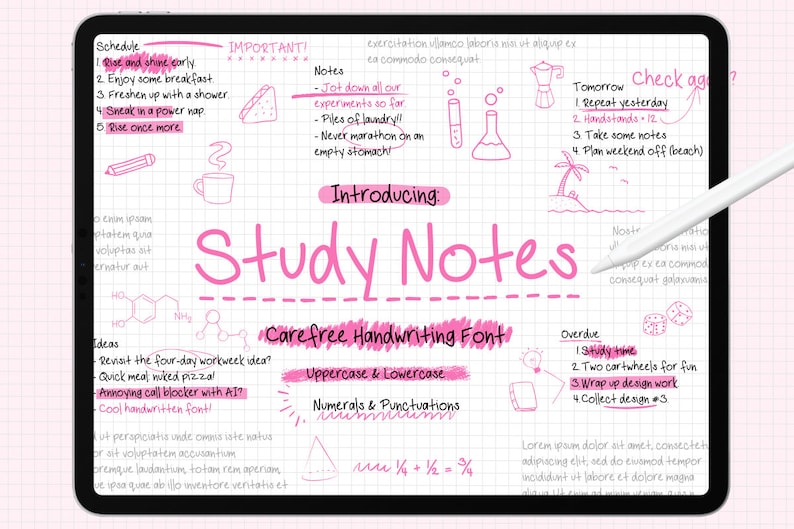 Schedule
1. Rise and shine early.
2. Enjoy some breakfast.
3. Freshen up with a shower.
4. Sneak in a power nap.
5. Rise once more.
IMPORTANT!
exercitation ullamco laboris nisi ut aliquip ex
ea commodo consequat.
Notes
- Jot down all our
experiments so far.
- Piles of laundry!!
- Never marathon on an
empty stomach!
Check again?
Tomorrow
1. Repeat yesterday
2. Handstands × 12
3. Take some notes
4. Plan weekend off (beach)
enim ipsam
voluptas sit
aut
Introducing:
Study Notes
Carefree Handwriting Font
Uppercase & Lowercase
Numerals & Punctuations
Nostr
laboris nisi ut
aliquip ex ea commodo
consequat galaxianis
HO
HO
NH₂
Ideas
- Revisit the four-day workweek idea?
- Quick meal: nuked pizza!
- Annoying call blocker with AI?
- Cool handwritten font!
Overdue
1. Study time
2. Two cartwheels for fun
3. Wrap up design work
4. Collect design #3
ut perspiciatis unde omnis iste natus
sit voluptatem accusantium
doloremque laudantium, totam rem aperiam,
eaque ipsa quae ab illo inventore veritatis et
1/4 + 1/2 = 3/4
Lorem ipsum dolor sit amet, consectetu
adipiscing elit, sed do eiusmod tempor
incididunt ut labore et dolore magna
aliqua. Ut enim ad minim veniam, quis n